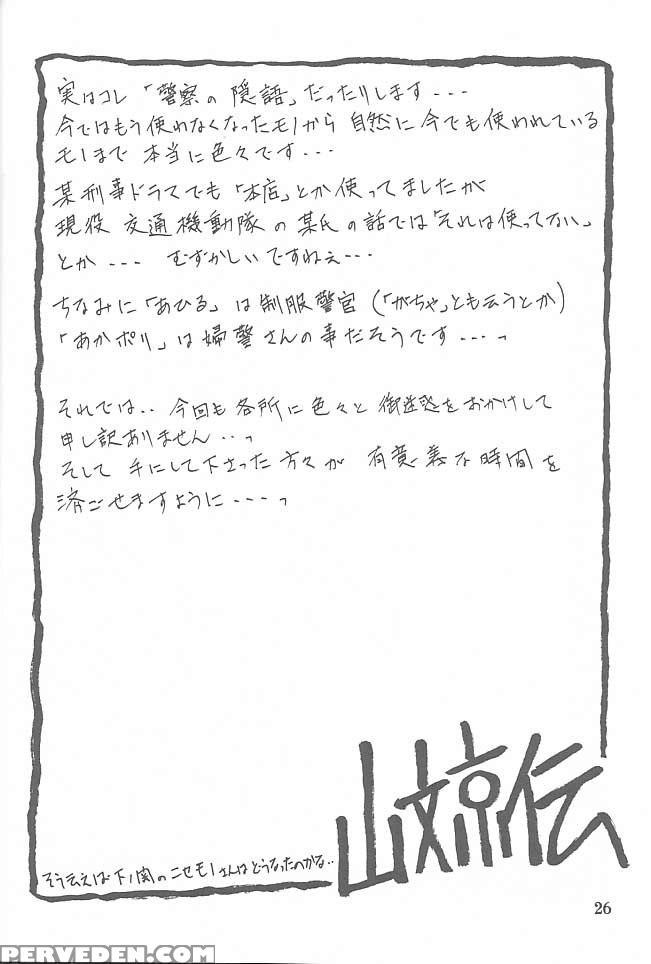 実はコレ「警察の隠語」だったりします---
今ではもう使われなくなったモノから 自然に今でも使われている
モノまで 本当に色々です---
某刑事ドラマでも「本店」とか使ってましたが
現役 交通機動隊の某氏の話では「それは使ってない」
とか--- むずかしいですねぇ---
ちなみに「あひる」は制服警官(「がちゃ」とも云うとか)
「あかポリ」は婦警さんの事だそうです---っ
それでは.. 今回も各所に色々と御迷惑をおかけして
申し訳ありません--っ
そして 手にして下さった方々が 有意義な時間を
済ごせますように---っ
山文京伝
そう云えば下ノ関のニセモノさんはどうなったのかな..
26
PERVEDEN.COM